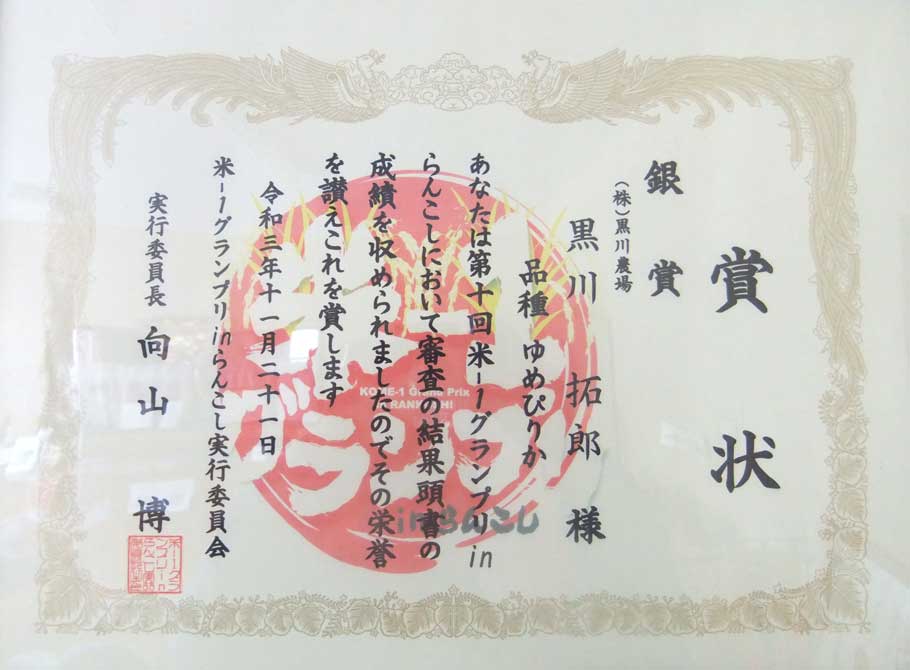 賞状
銀賞
(株)黒川農場
黒川拓郎様
品種 ゆめぴりか
あなたは第十回米-1グランプリin
らんこしにおいて審査の結果頭書の
成績を収められましたのでその栄誉
を讃えこれを賞します
令和三年十一月二十一日
米-1グランプリinらんこし実行委員会
実行委員長 向山博
米-1
グランプリ
KOME-1 Grand Prix
inらんこし